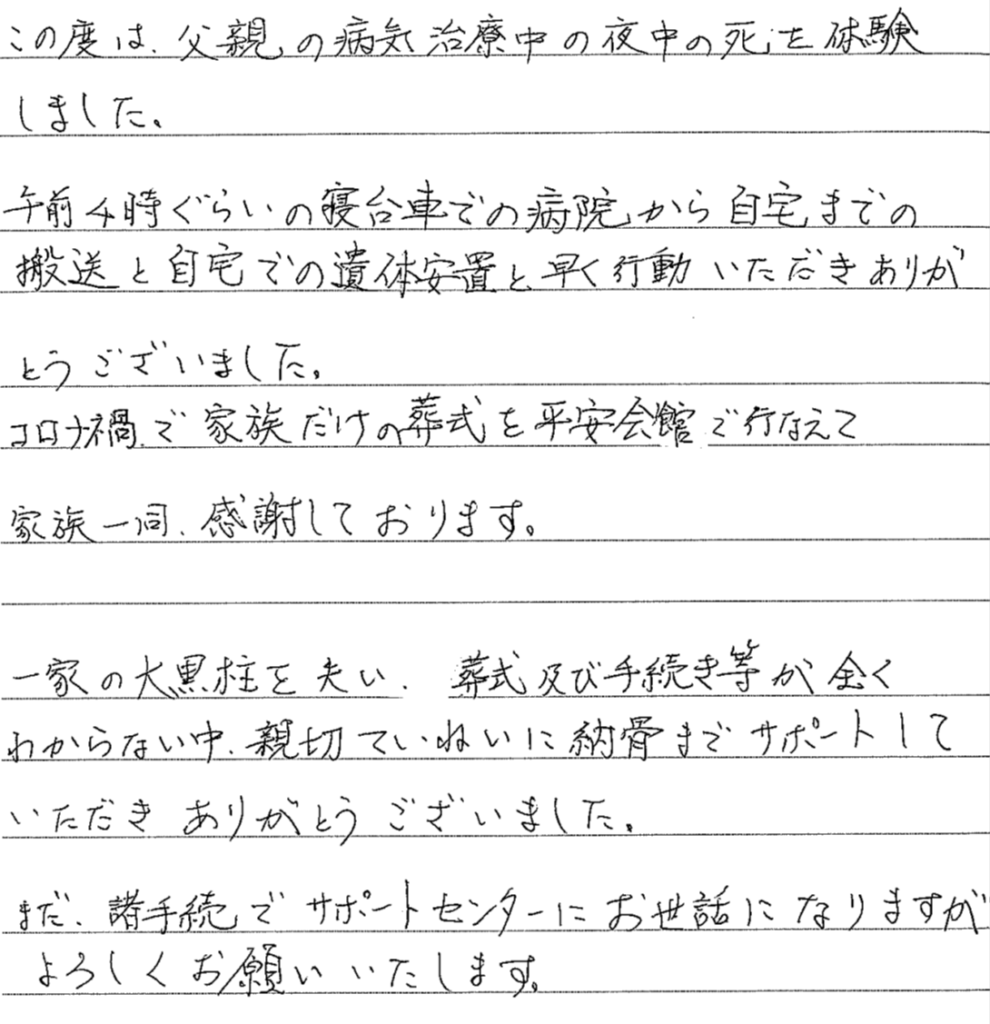 この度は、父親の病気治療中の夜中の死を体験
しました。
午前4時ぐらいの寝台車での病院から自宅までの
搬送と自宅での遺体安置と、早く行動いただきありが
とうございました。
コロナ禍で家族だけの葬式を平安会館で行なえて
家族一同、感謝しております。
一家の大黒柱を失い、葬式及び手続き等が全く
わからない中、親切ていねいに納骨までサポートして
いただきありがとうございました。
まだ、諸手続でサポートセンターにお世話になりますが
よろしくお願いいたします。